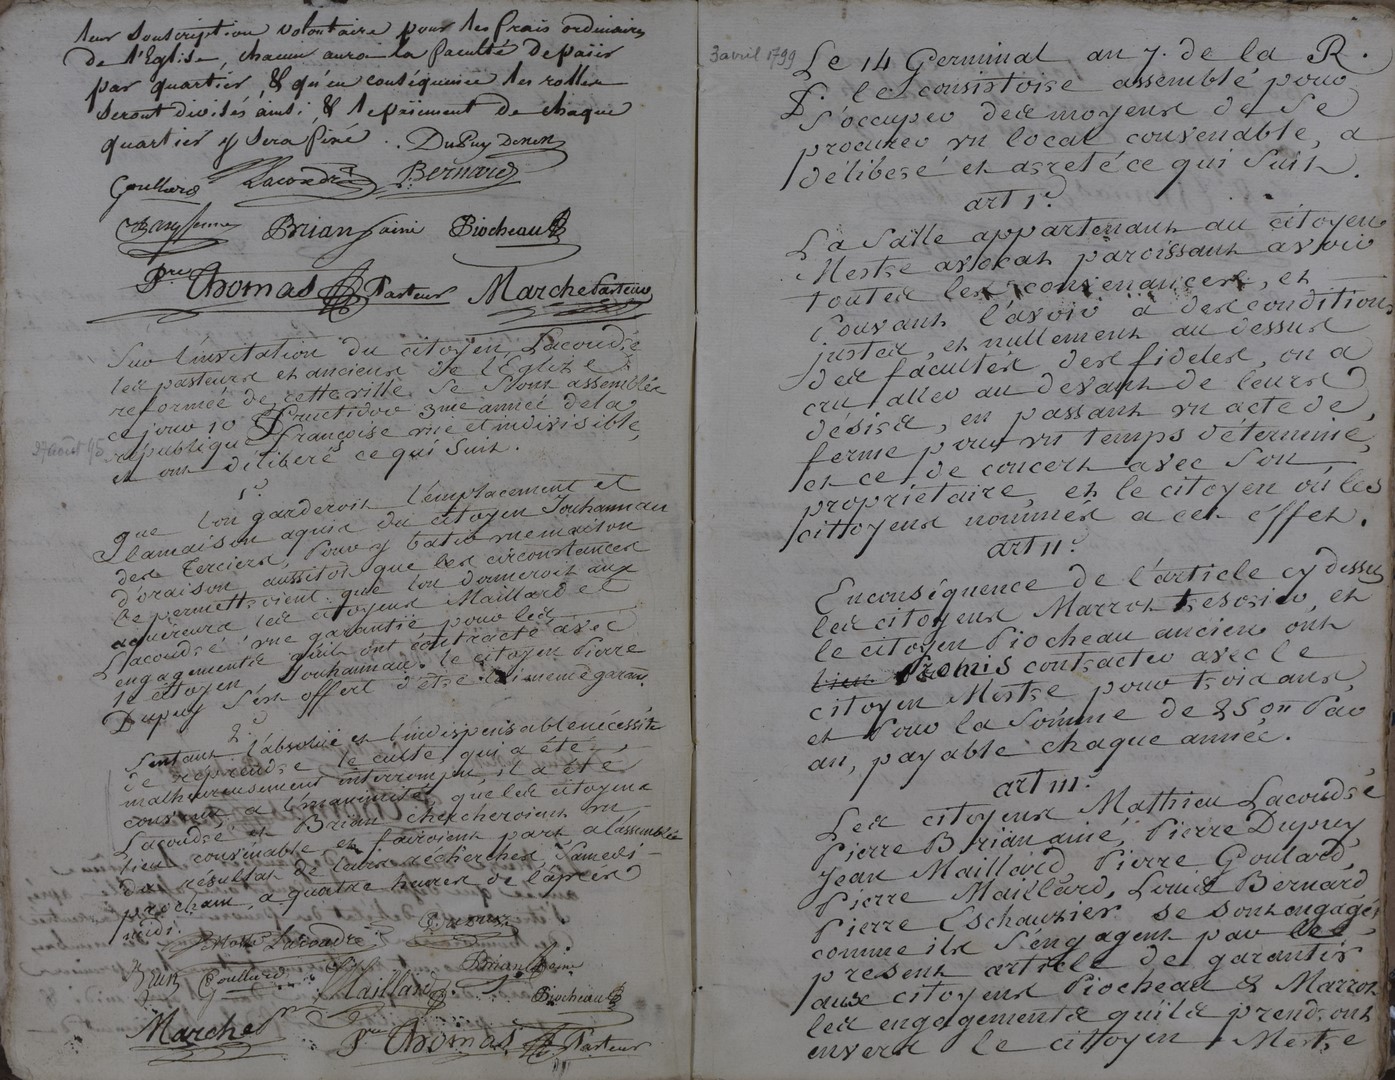 leur souscription volontaire pour les frais ordinaires
de l'Eglise, chacun aura la faculté de paiir
par quartier, & qu'en conséquence les rolles
seront divisés ainsi, & le paiiment de chaque
quartier y sera fixé. DuPuy
Goullard Lacoudre Bernard
Brian Piocheau
Pre Thomas Pasteur Marche Pasteur
Sur l'invitation du citoyen Lacoudré
les pasteurs et anciens de l'Eglise
reformée de cette ville se sont assemblés
ce jour 10 fructidor 3me année de la
republique françoise une et indivisible,
27 août 95
et ont délibéré ce qui suit.
1°
que l'on garderoit l'emplacement et
la maison aquis du citoyen Jouhanneau
des Terciers, pour y batir une maison
d'oraison aussitôt que les circonstances
le permettroient. que l'on donneroit aux
aquereurs les citoyens Maillard et
Lacoudré une garantie pour les
engagements qu'ils ont contracté avec
le citoyen Jouhanneau. le citoyen Pierre
Dupuy s'est offert d'être lui même garant.
2°
Sentant l'absolue et l'indispensable nécessité
de reprendre le culte qui a été
malheureusement interrompu, il a été
convenu à l'unanimité que les citoyens
Lacoudré et Brian chercheroient un
lieu convenable et fairoient part à l'assemblée
du résultat de leurs recherches, Samedi
prochain, a quatre heures de l'après
midi.
Lacoudre
Goullard Maillard Brian
Piocheau
Marche Pr Pre Thomas Pasteur
3 avril 1799
Le 14 Germinal an 7. de la R.
f. le consistoire assemblé pour
s'occuper des moyens de se
procurer un local convenable, a
délibéré et arreté ce qui suit.
art 1r.
La Salle appartenant au citoyen
Mestre avocat paroissant avoir
toutes les convenances, et
pouvant l'avoir a des conditions
justes, et nullement au dessus
des facultés des fideles, on a
cru aller au devant de leurs
désirs, en passant un acte de
ferme pour un temps déterminé,
et ce de concert avec son
propriétaire, et le citoyen où les
cittoyens nommés a cet éffet.
art II.
Enconséquence de l'article cy dessus
les citoyens Marrot tresorier, et
le citoyen Piocheau ancien ont
promis contracter avec le
citoyen Mestre pour trois ans,
et pour la somme de par
an, payable chaque année.
art III.
Les citoyens Mathieu Lacoudré
Pierre Brian ainé, Pierre Dupuy,
Jean Maillard, Pierre Goulard,
Pierre Maillard, Louis Bernard
Pierre Eschauzier se sont engagés
comme ils s'engagent par le
présent article de garantir
aux citoyens Piocheau & Marrot
les engagements qu'ils prendront
envers le cittoyen Mestre